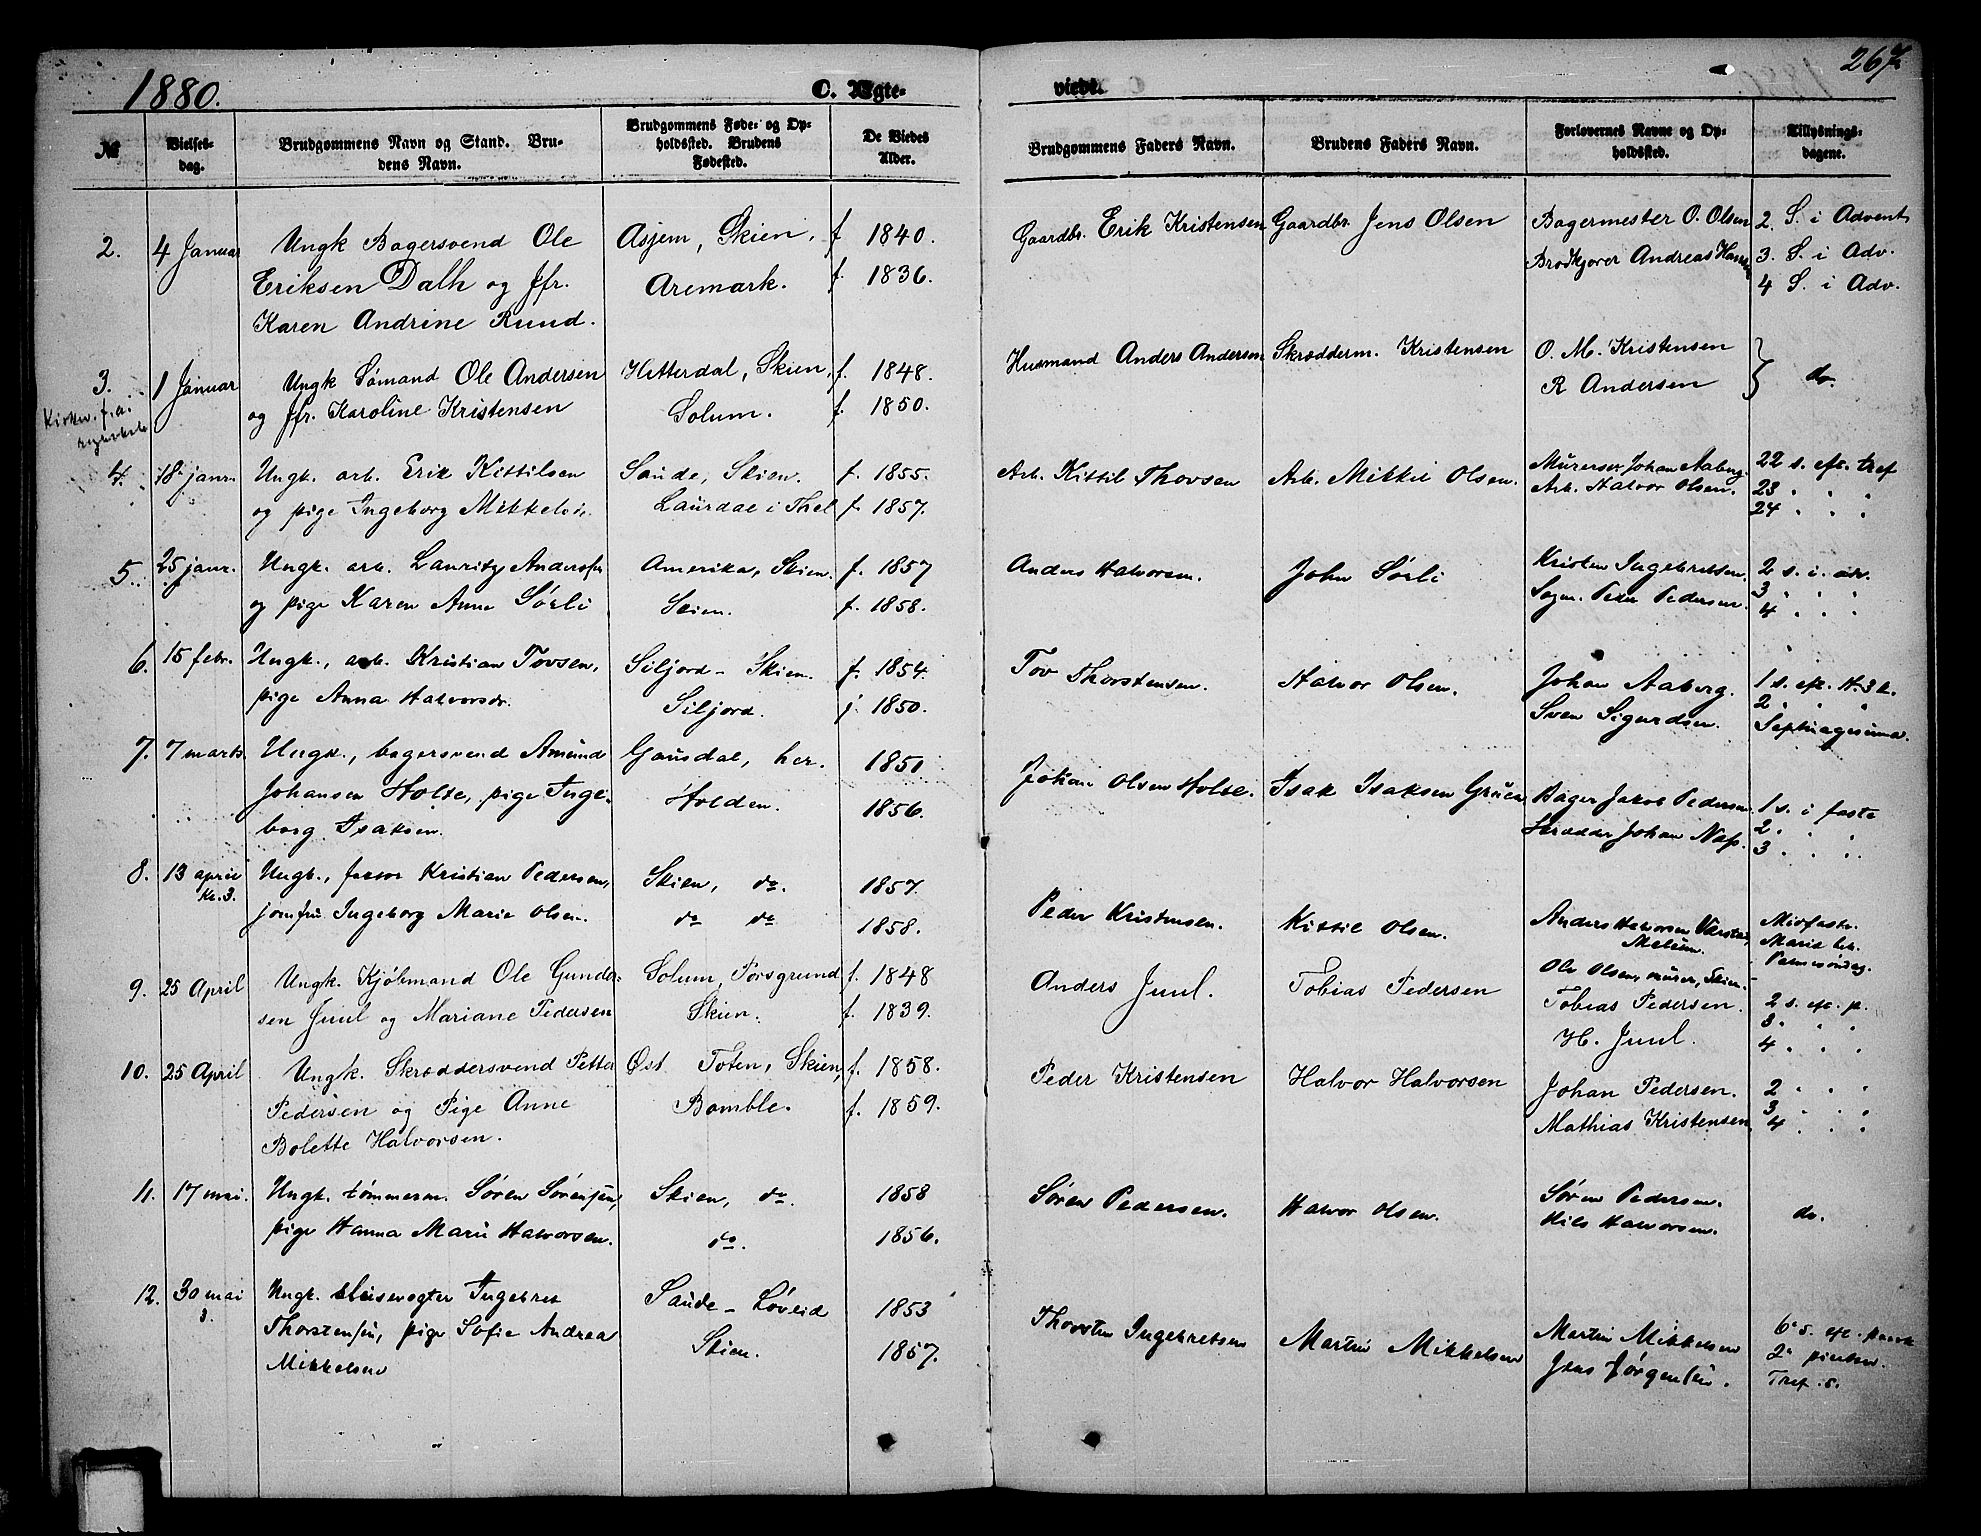 1880.
C. Ægte-
viede.
267
№
Vielses-
dag.
Brudgommens Navn og Stand. Bru-
dens Navn.
Brudgommens Føde- og Op-
holdssted. Brudens
Fødested.
De Viedes
Alder.
Brudgommens Faders Navn.
Brudens Faders Navn.
Forlovernes Navne og Op-
holdssted.
Tillysnings-
dagene.
2. 4 Januar Ungk Bagersvend Ole Asjem, Skien, f 1840. Gaardbr. Erik Kristensen Gaardbr. Jens Olsen Bagermester O. Olsen 2. S. i Advent
Eriksen Dalh og Jfr. Aremark. f. 1836. Brødkjører Andreas Hansen 3. S. i Adv.
Karen Andrine Rund. 4 S. i Adv.
3. 1 Januar Ungk Sømand Ole Andersen Hitterdal, Skien, f. 1848. Husmand Anders Andersen Skrædderm. Kristensen O. M. Kristensen do.
og Jfr. Karoline Kristensen Solum. f. 1850. R Andersen
Kirkev. f. a.
4. 18 janr. Ungk. arb. Erik Kittilsen Saude, Skien. f. 1855. Arb. Kittil Thovsen Arb. Mikkel Olsen. Murersv. Johan Aaberg. 22 s. eft. tref
og pige Ingeborg Mikkelsd. Laurdal i Thel f. 1857. Arb. Halvor Olsen. 23 " " "
24 " " "
5. 25 janr. Ungk. arb. Lauritz Anderssen Amerika, Skien. f. 1857 Anders Halvorsen. John Sørli Kristen Ingebretsen. 2 s. i. adv.
og pige Karen Anne Sørli Skien. f. 1858. Sagm. Peder Pedersen. 3 " " "
4 " " "
6. 15 febr. Ungk., arb. Kristian Tovsen, Siljord - Skien. f. 1854. Tov Thorstensen. Halvor Olsen. Johan Aaberg. 1 s. eft. H. 3 k.
pige Anna Halvorsdr. Siljord. f. 1850. Sven Sigurdsen. 2 " " "
Septuagesima.
7. 7 marts Ungk., bagersvend Amund Gausdal, her. 1851 Johan Olsen Holte. Isak Isaksen Gruen Bager Jakob Pedersen 1 s. i faste
Johansen Holte, pige Inge- Holden. 1856. Skrædder Johan Næs. 2 " "
borg Isaksen. 3 " "
8. 13 april Ungk., factor Kristian Pedersen, Skien, do. 1857. Peder Kristensen. Kittil Olsen. Anders Halvorsen Varstad, Midfaste.
Kl. 3. jomfru Ingeborg Marie Olsen. do do 1858. Melum. Mariæ beb.
Ole Olsen, murer, Skien. Palmesøndag.
9. 25 April Ungk. Kjøbmand Ole Gunder- Solum, Porsgrund f. 1848 Anders Juul. Tobias Pedersen Tobias Pedersen. 2 s. eft. p.
sen Juul og Mariane Pedersen Skien. f. 1839. H. Juul. 3 " "
4 " "
10. 25 April Ungk. Skræddersvend Petter Øst Toten, Skien, f. 1858. Peder Kristensen Halvor Halvorsen Johan Pedersen. 2 " "
Pedersen og Pige Anne Bamble. f. 1859. Mathias Kristensen 3 " "
Bolette Halvorsen. 4 " "
11. 17 mai. Ungk. tømmerm. Søren Sørensen, Skien, do. 1858 Søren Pedersen. Halvor Olsen. Søren Pedersen. do.
pige Hanna Marie Halvorsen. do. 1856. Nils Halvorsen.
12. 30 mai Ungk. slusevogter Ingebret Saude - Løveid 1853 Thorsten Ingebretsen Martin Mikkelsen Martin Mikkelsen 6 s. eft. paask
3. Thorstensen, pige Sofie Andrea Skien. 1857. Jens Jørgensen. 2 pintsed.
Mikkelsen Tref. s.